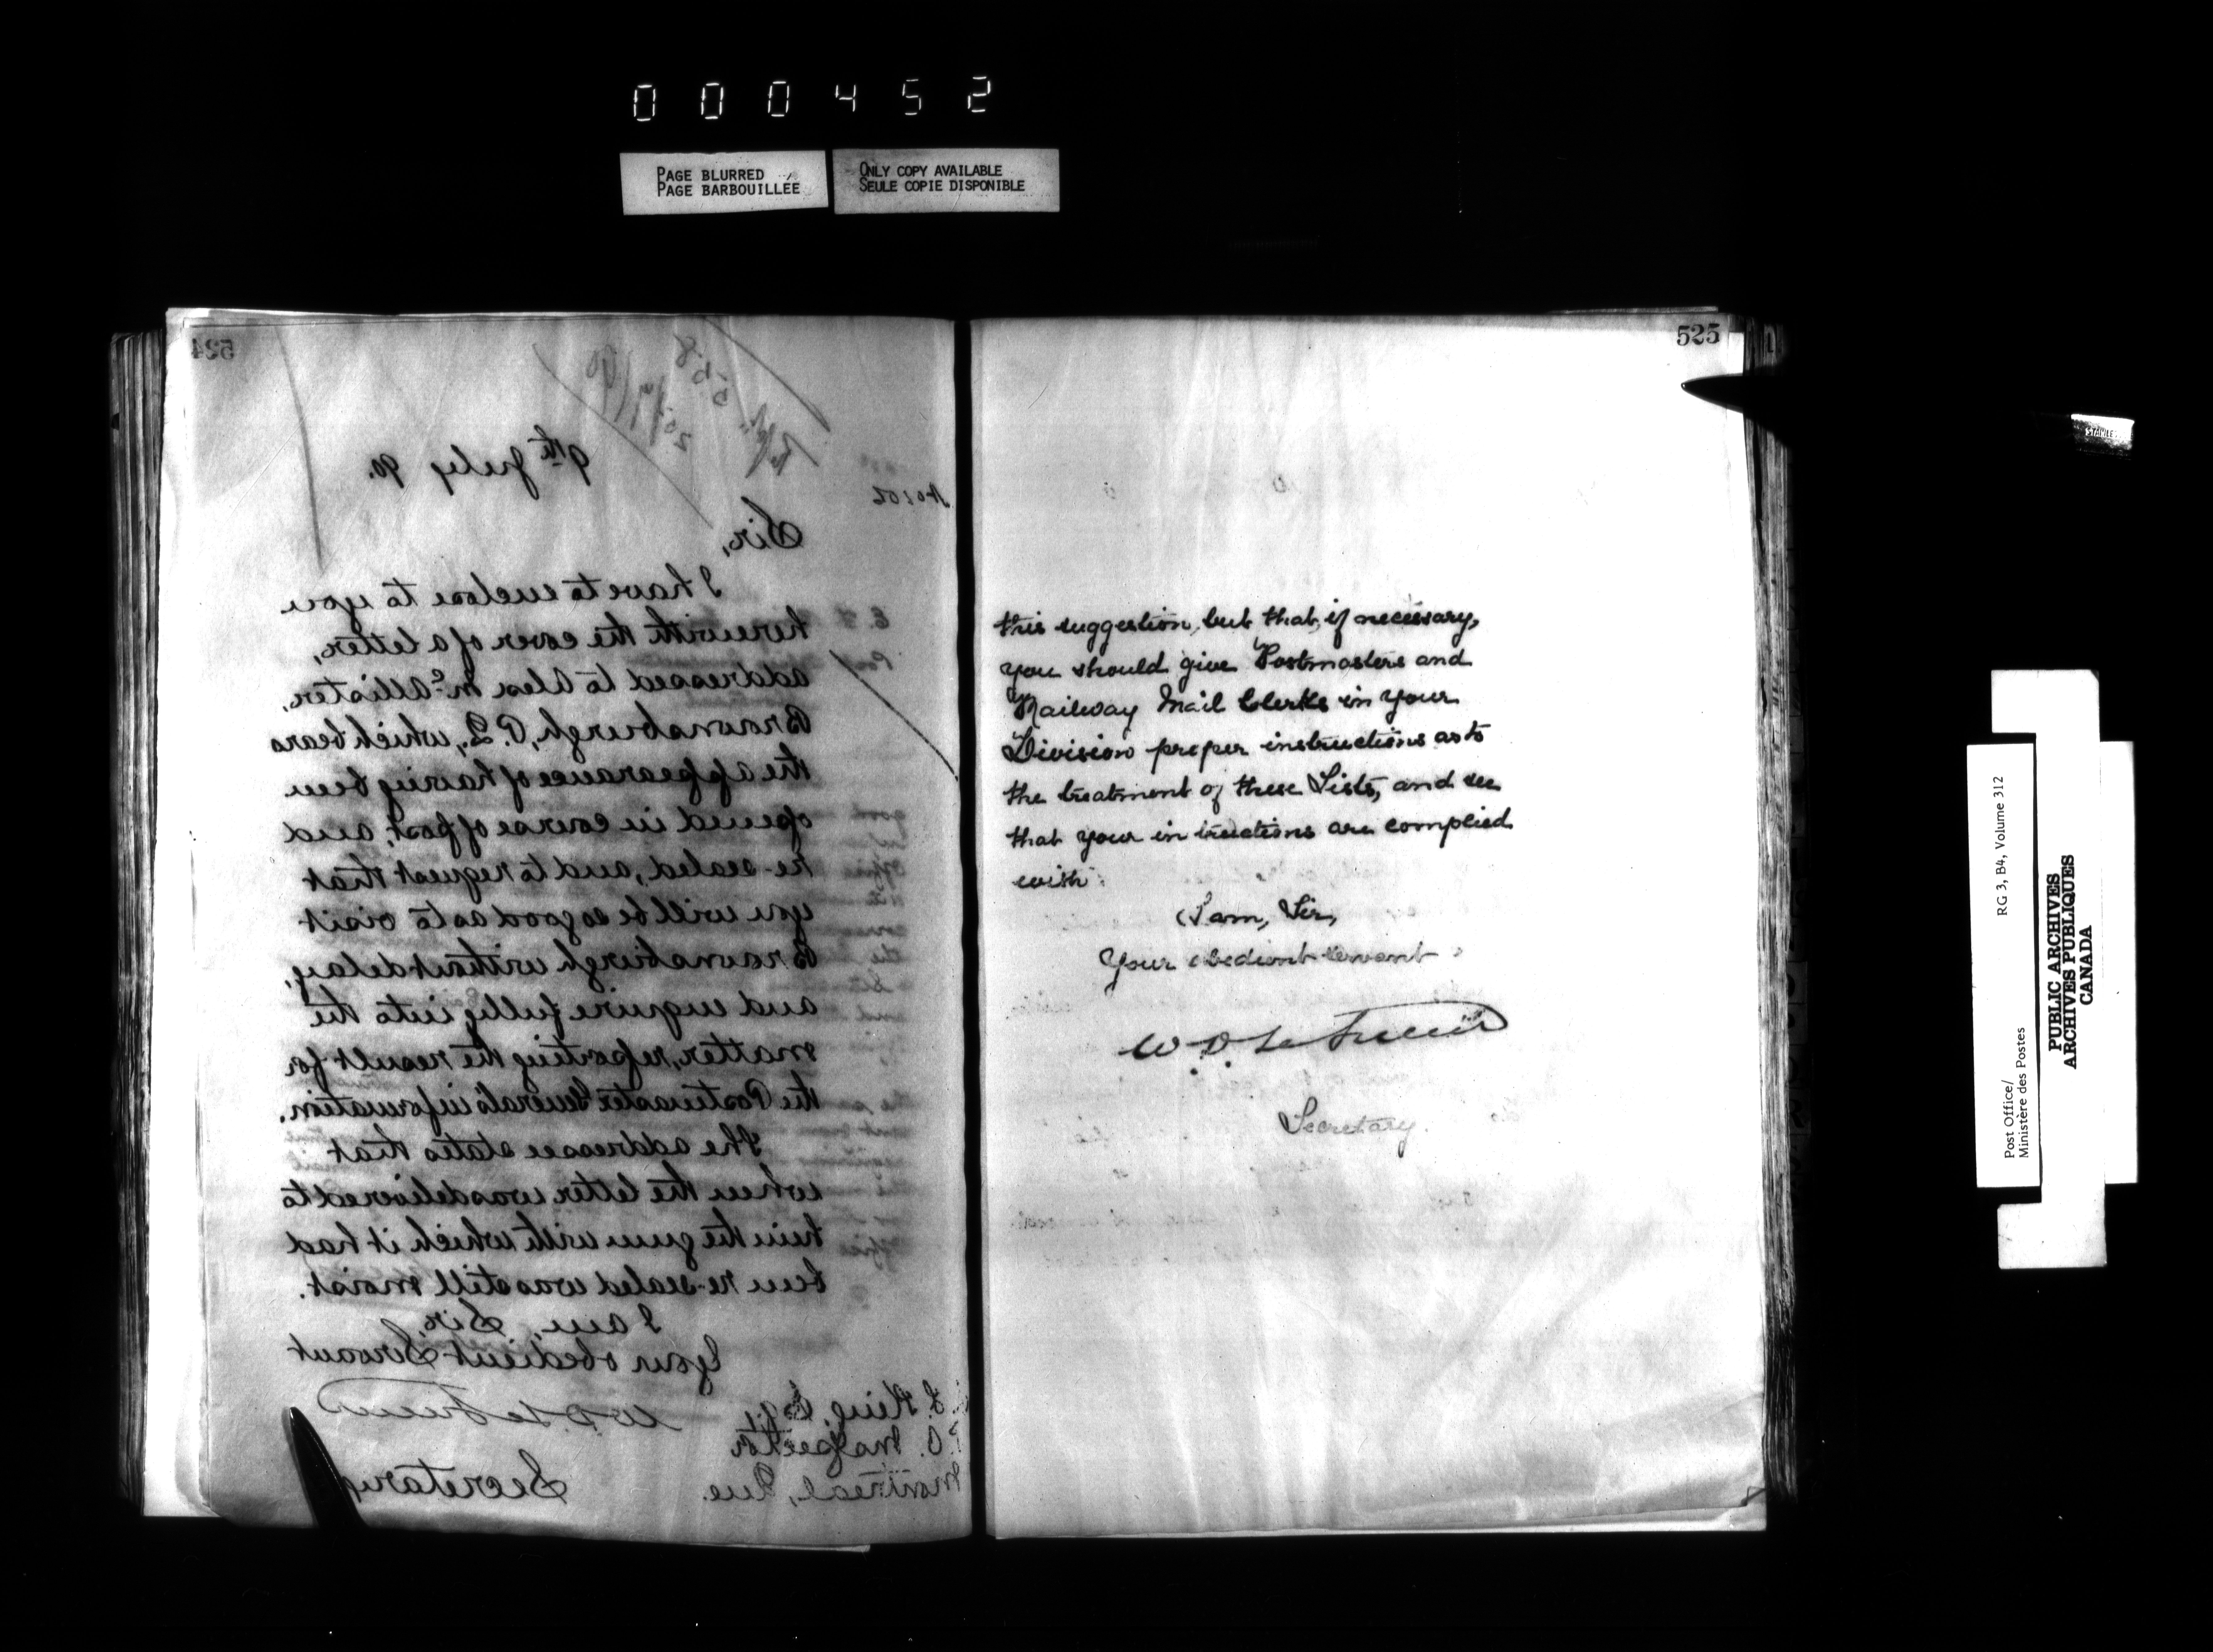 000452
PAGE BLURRED
PAGE BARBOUILLÉE
ONLY COPY AVAILABLE
SEULE COPIE DISPONIBLE
524
558
20/7/90
9th July 90.
Sir,
I have to enclose to you
herewith the cover of a letter,
addressed to Alex McAllister,
Brownsburgh, P.Q., which bears
the appearance of having been
opened in course of post, and
re-sealed, and to request that
you will be so good as to visit
Brownsburgh without delay,
and enquire fully into the
matter, reporting the result for
the Postmaster General's information.
The addressee states that
when the letter was delivered to
him the gum with which it had
been re-sealed was still moist.
I am, Sir,
Your obedient Servant
Secretary
King, Esq
P.O. Inspector
Montreal, Que.
525
this suggestion, but that, if necessary,
you should give Postmasters and
Railway Mail Clerks in your
Division proper instructions as to
the treatment of these Lists, and see
that your instructions are complied
with.
I am, Sir,
Your obedient servant
Secretary.
STANLE
Post Office/
Ministère des Postes
RG 3, B4, Volume 312
PUBLIC ARCHIVES
ARCHIVES PUBLIQUES
CANADA